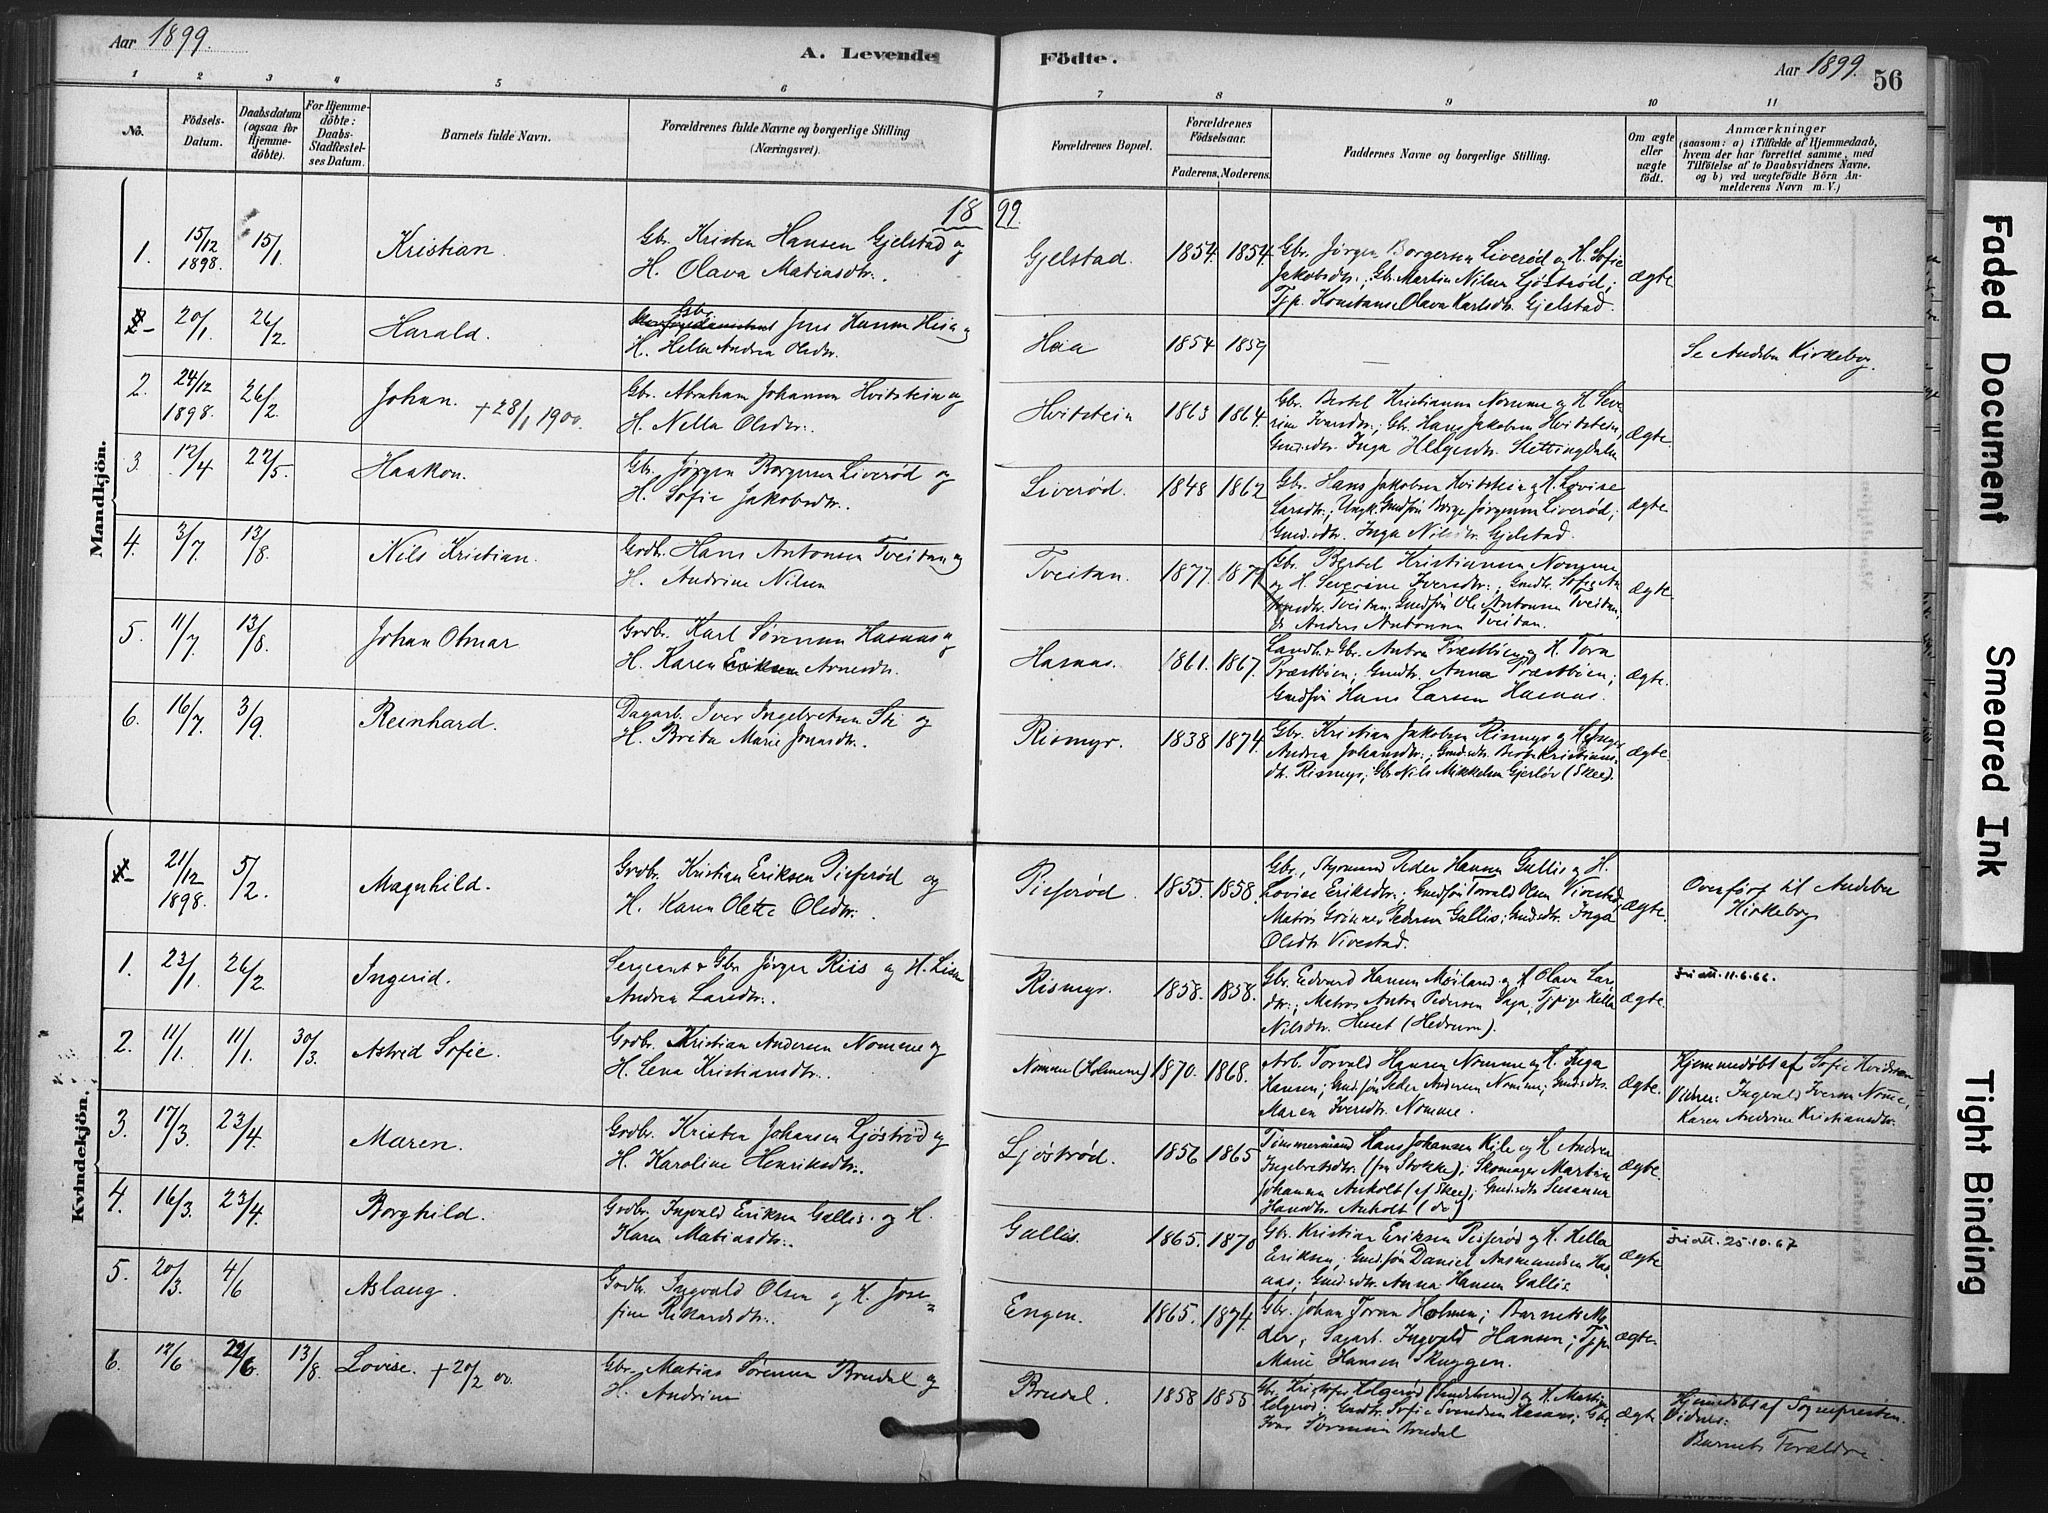 Aar 1899.
A. Levende Födte.
Aar 1899.
56
1 2 3 4 5 6 7 8 9 10 11
No.
Födsels-Datum.
Daabsdatum (ogsaa for Hjemmedöbte).
For Hjemmedöbte: Daabs-Stadfæstelses Datum.
Barnets fulde Navn.
Forældrenes fulde Navne og borgerlige Stilling
(Næringsvei).
Forældrenes Bopæl.
Forældrenes Födselsaar.
Faderens. Moderens.
Faddernes Navne og borgerlige Stilling.
Om ægte eller uægte födt.
Anmærkninger
(saasom: a) i Tilfælde af Hjemmedaab,
hvem der har forrettet samme, med
Tilföielse af to Daabsvidners Navne,
og b) ved uægtefödte Börn An-
melderens Navn m. V.)
Mandkjön.
1899.
1. 15/12 1898. 15/1 Kristian.
Gbr. Kristen Hansen Gjelstad og
H. Olava Matiasdtr.
Gjelstad. 1854. 1854.
Gbr. Jørgen Borgersen Liverød og H. Sofie
Jakobsdtr.; Gbr. Martin Nilsen Ljøstrød;
Tjp. Konstanse Olava Karlsdtr. Gjelstad.
ægte
20/1 26/2 Harald.
Gbr. Jens Hansen Haa og
H. Helene Andrea Olsdtr.
Haa 1854 1859
—
Se Andebu Kirkebog.
2. 24/12 1898. 26/2 Johan. +28/1 1900.
Gbr. Abraham Johansen Hvitstein og
H. Nella Olsdtr.
Hvitstein 1863 1864.
Gbr. Bertel Kristiansen Nomme og H. Seve-
rine Iversdtr.; Gbr. Hans Jakobsen Hvitstein,
Gmd.dtr. Inga Helgesdtr. Slettingdalen
ægte
3. 12/4 22/5 Haakon.
Gbr. Jørgen Borgersen Liverød og
H. Sofie Jakobsdtr.
Liverød. 1848 1862
Gbr. Hans Jakobsen Hvitstein og H. Lovise
Larsdtr.; Ungk. Gmdsøn Borge Jørgensen Liverød;
Gmd.dtr. Inga Nilsdtr. Gjelstad.
ægte
4. 3/7 13/8 Nils Kristian.
Grdbr. Hans Antonsen Tveitan og
H. Andrine Nilsen
Tveitan. 1877. 1877
Gbr. Bertel Kristiansen Nomme
og H. Severine Iversdtr.; Gmdtr. Sofie An-
tonsdtr. Tveitan; Gmdsøn Ole Antonsen Tveitan,
do Anders Antonsen Tveitan.
ægte.
5. 11/7 13/8 Johan Otmar
Grdbr. Karl Sørensen Hasaas og
H. Karen Eriksen Arnesdtr.
Hasaas. 1861. 1867.
Landh. & Gbr. Anton Præstbøen og H. Tora
Præstbøen; Gmdtr. Anna Præstbøen;
Gmdsøn Hans Larsen Hasaas.
ægte.
6. 16/7 3/9 Reinhard.
Dagarb. Iver Ingebretsen Sti og
H. Brita Marie Jonasdtr.
Rismyr. 1838 1874.
Gbr. Kristian Jakobsen Rismyr og H. Inger
Andrea Johansdtr.; Gmd.dtr. Berte Kristians-
dtr. Rismyr; Gbr. Nils Mikkelsen Gjerløv (Skee).
ægte
Kvindekjön.
21/12 1898. 5/2 Magnhild.
Grdbr. Kristian Eriksen Pisserød og
H. Karen Olette Olsdtr.
Pisserød. 1855. 1858.
Gbr., Styrmand Peder Hansen Gallis og H.
Lovise Eriksdtr.; Gmdsøn Torvald Olsen Vivestad,
Matros Gunnar Pedersen Gallis; Gmd.dtr. Inga
Olsdtr. Vivestad.
ægte.
Overført til Andebu
Kirkebog
1. 23/1 26/2 Ingerid.
Sergeant & Gbr. Jørgen Riis og H. Lise
Andrea Larsdtr.
Rismyr. 1858. 1858.
Gbr. Edvard Hansen Møiland og H. Olava Lars-
dtr.; Matros Anton Pedersen Saga, Tjpige Hella
Nilsdtr. Huset (Hedrum).
ægte
Fri att. 11.6.66.
2. 11/1 11/1 30/3 Astrid Sofie.
Grdbr. Kristian Andersen Nomme og
H. Lena Kristiansdtr.
Nomme (Holmene) 1870. 1868.
Arb. Torvald Hansen Nomme og H. Inga
Hansen; Gmd.søn Peder Andersen Nomme; Gmd.dtr.
Maren Iversdtr. Nomme.
ægte.
Hjemmedøbt af Sofie Hvidsteen
Vidner: Ingvald Iversen Nome,
Karen Andrine Kristiansdtr.
3. 17/3 23/4 Maren.
Grdbr. Kristen Johansen Ljøstrød og
H. Karoline Henriksdtr.
Ljøstrød. 1856 1865
Timmermand Hans Johansen Kjile og H. Andrea
Ingebretsdtr. (fra Stokke); Skomager Martin
Johansen Anholt (af Skee); Gmd.dtr. Susanna
Hansdtr. Anholt (do)
ægte
4. 16/3. 23/4. Borghild.
Grdbr. Ingvald Eriksen Gallis. og H.
Karen Matiasdtr.
Gallis. 1865. 1870
Gbr. Kristian Eriksen Pisserød og H. Hella
Eriksen, Gmdsøn Daniel Aasmundsen Has-
aas; Gmd.dtr. Anna Hansen Gallis.
ægte
Fri att. 25.10.67
5. 20/3 4/6 Aslaug.
Grdbr. Ingvald Olsen og H. Jose-
fine Rikardsdtr.
Engen. 1865. 1874.
Gbr. Johan Holmen; Barnets Mo-
der; Sagarb. Ingvald Hansen; Tjp.
Marie Hansen Skuggen.
ægte.
6. 12/6 22/6 13/8 Lovise. +20/2 00.
Gbr. Matias Sørensen Brudal og
H. Andrine
Brudal. 1858 1855
Gbr. Kristofer Helgerød (Sandeherred) og H. Martine
Helgerød; Gmdtr. Sofie Svendsen Hasaas; Gbr.
Iver Sørensen Brudal
ægte
Hjemdøbt af Sognepresten.
Vidner:
Barnets Forældre.
Faded Document
Smeared Ink
Tight Binding